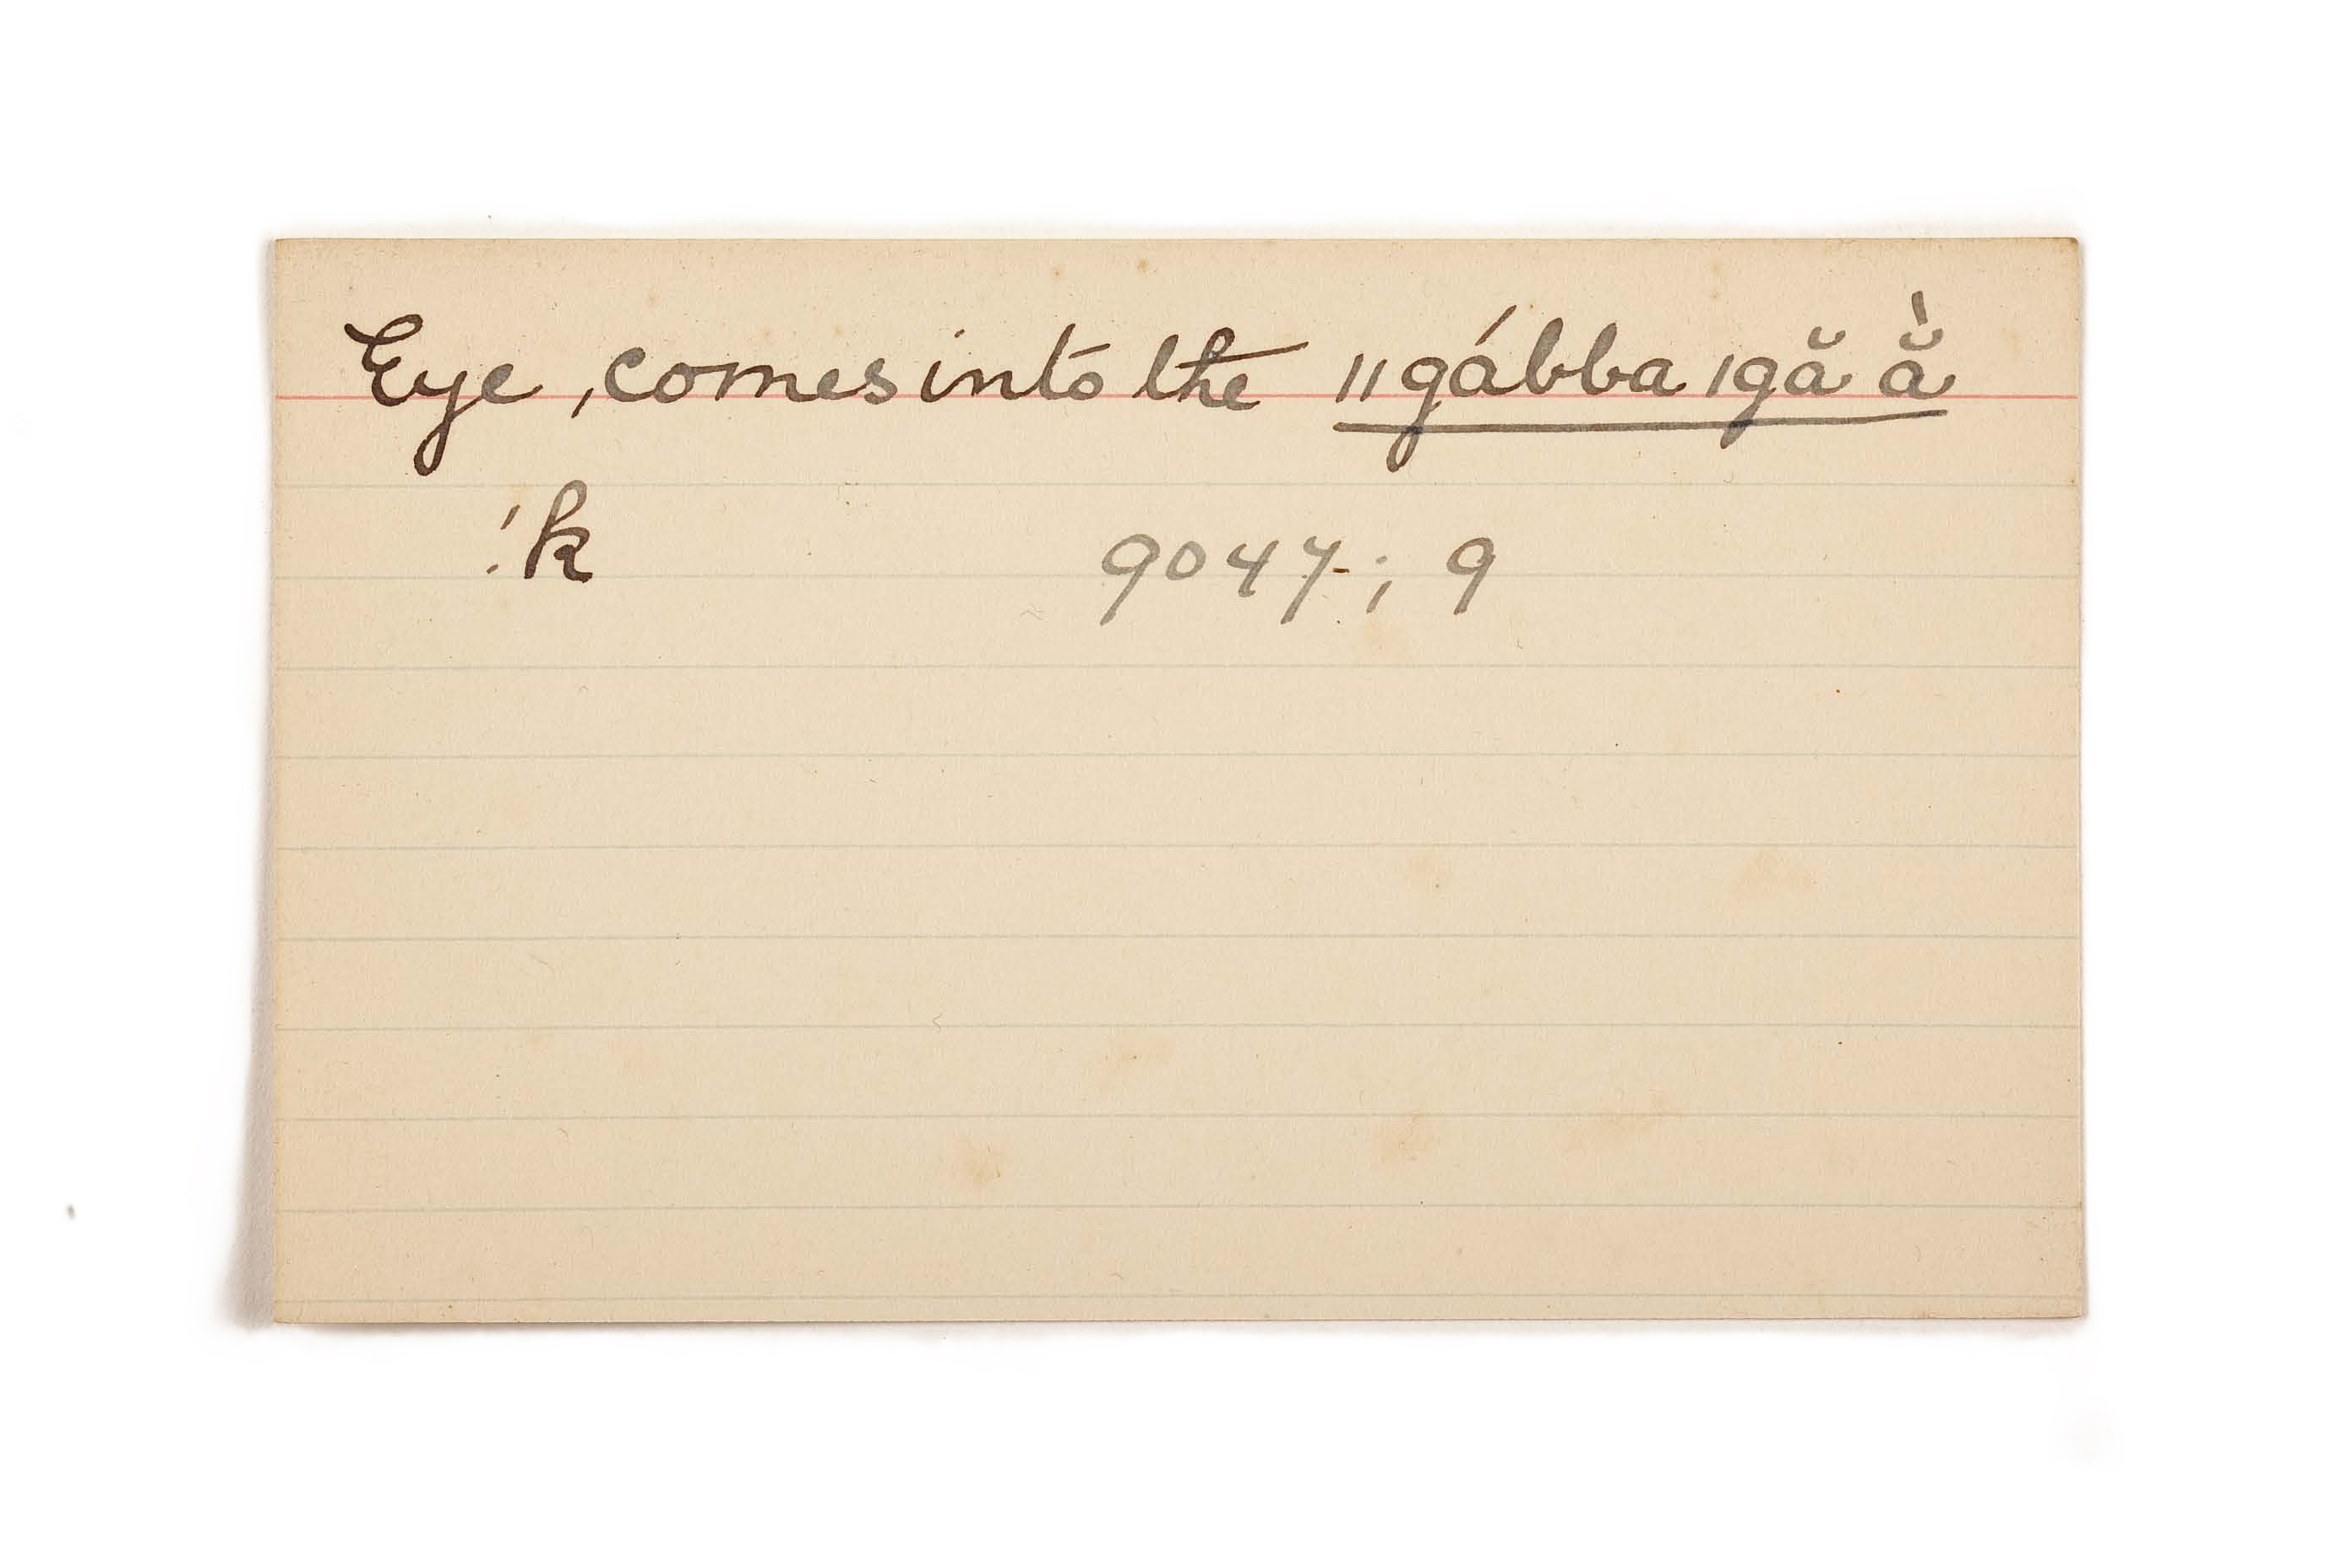 Eye, comes into the ǁgábba ǀgă ằ
!k 9047; 9